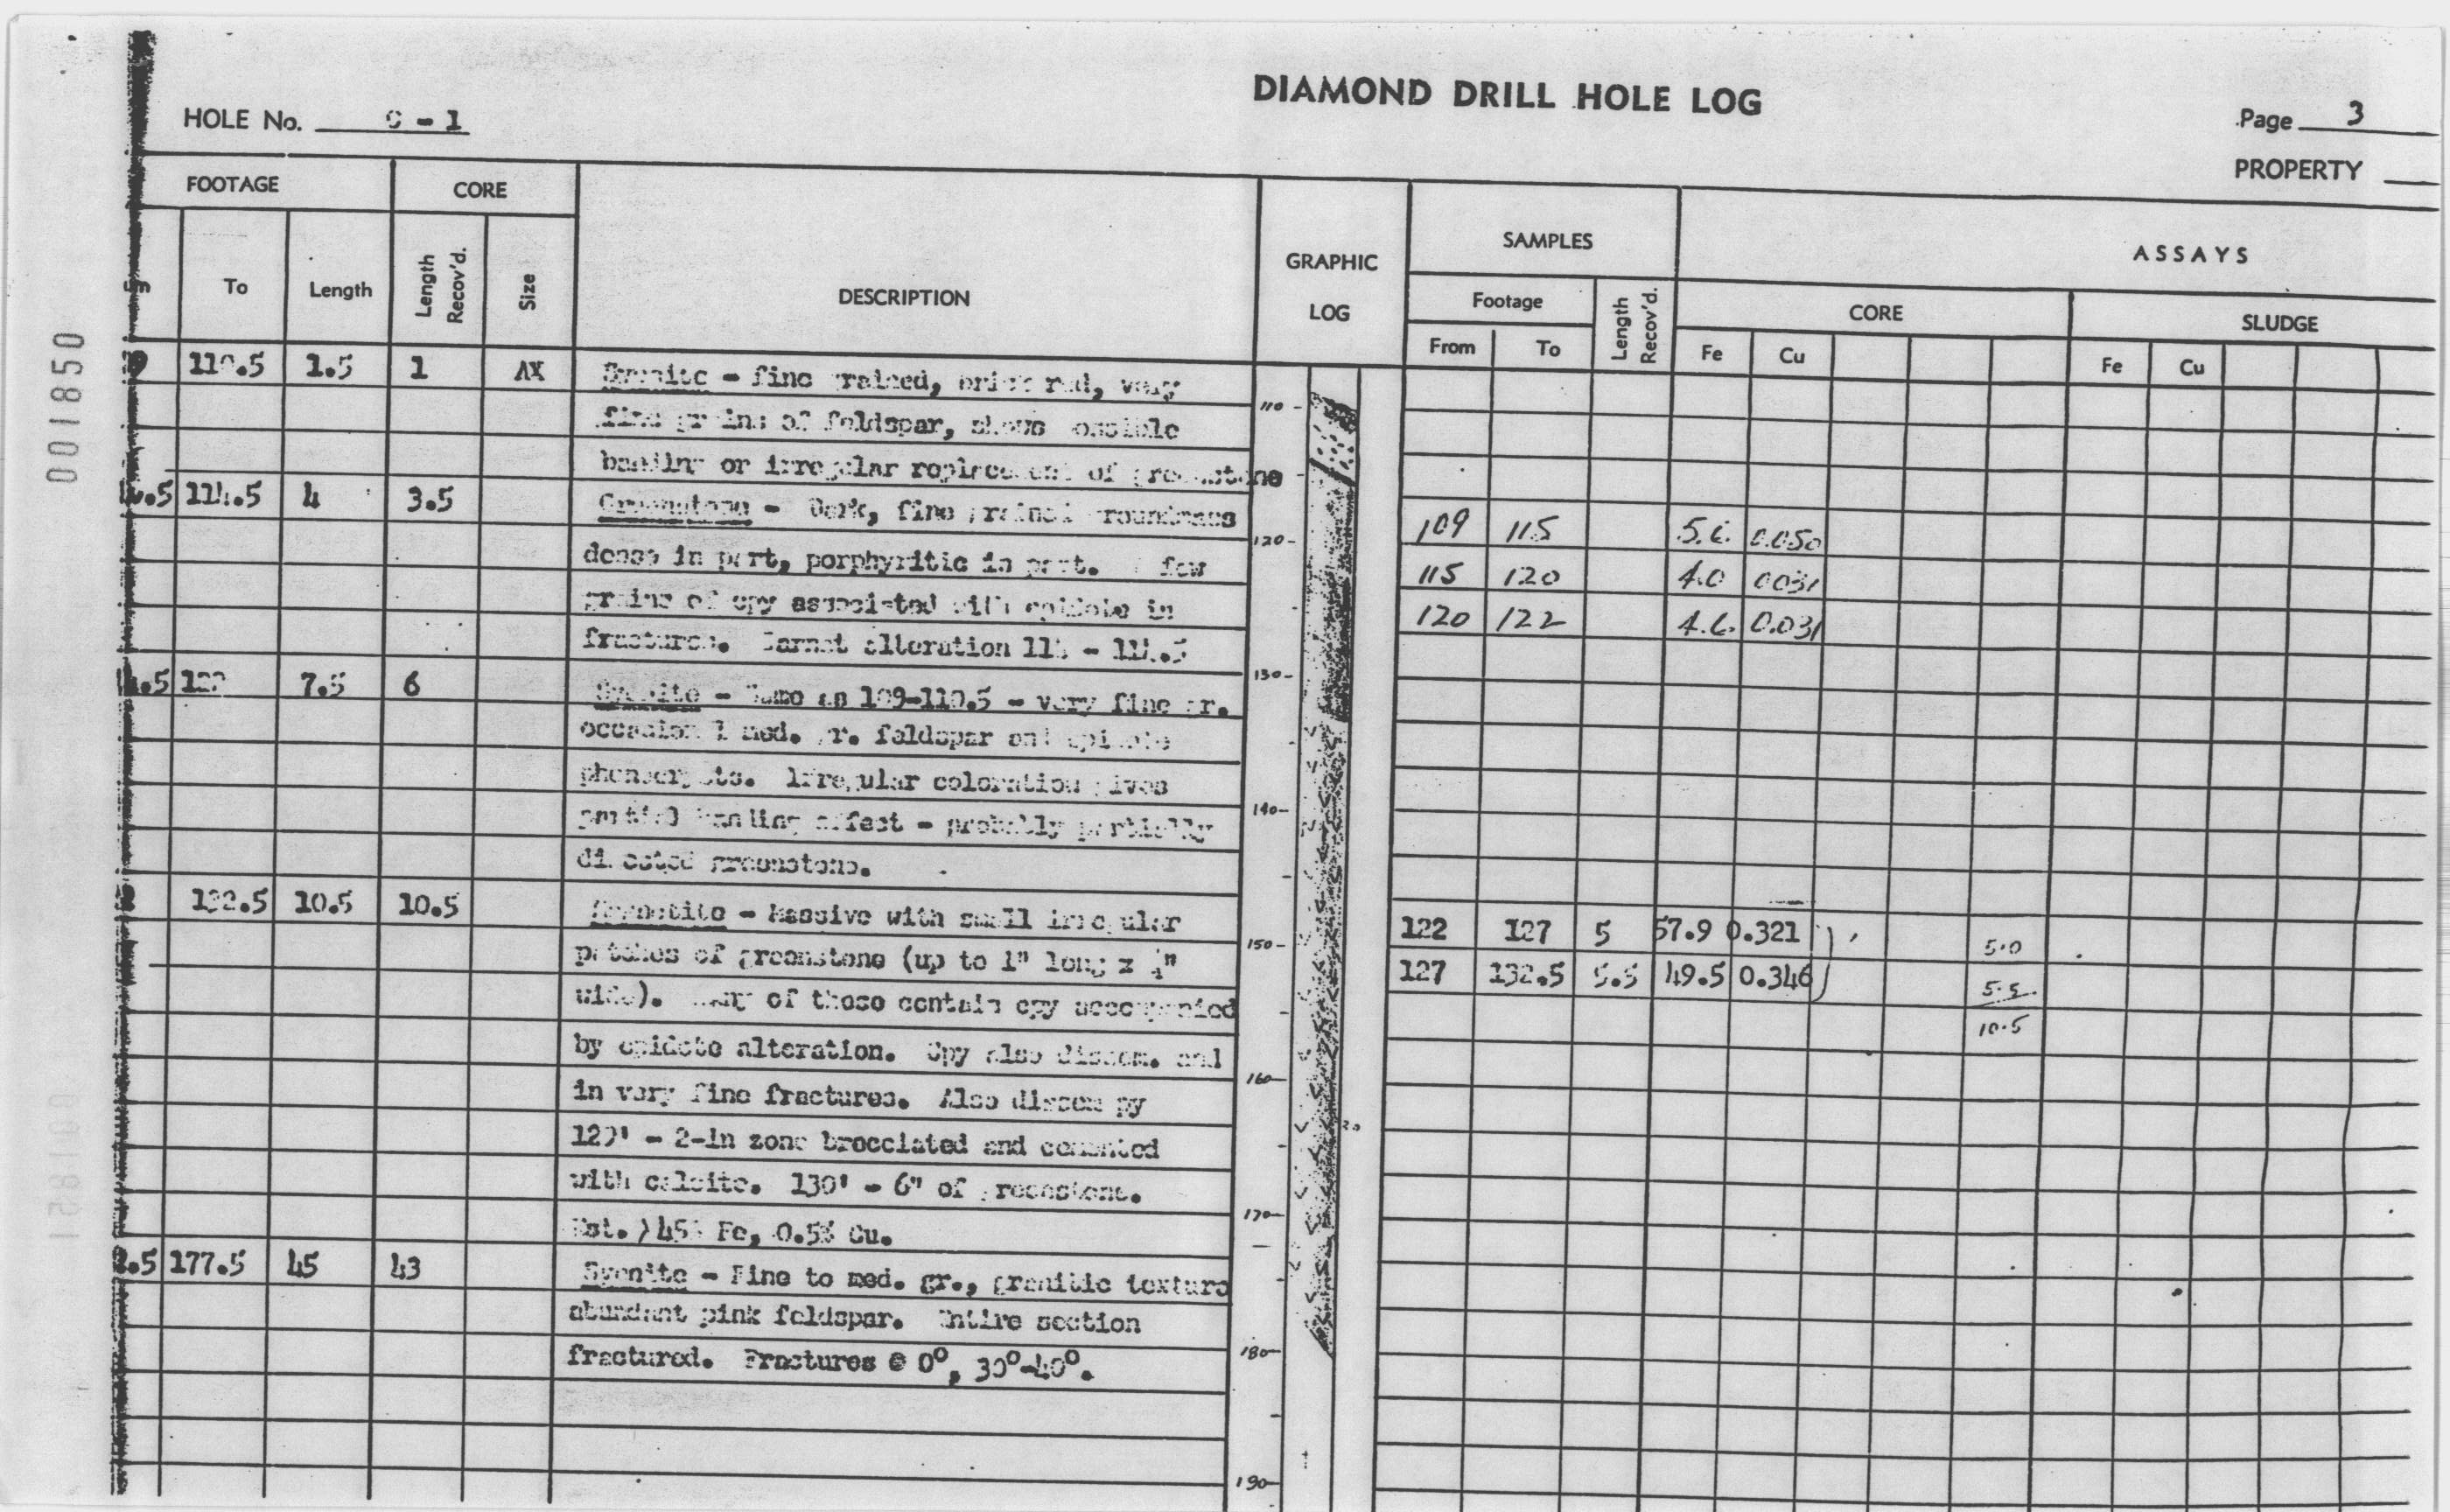 DIAMOND DRILL HOLE LOG
HOLE No. - 1
Page 3
PROPERTY
FOOTAGE
CORE
DESCRIPTION
GRAPHIC
LOG
SAMPLES
ASSAYS
To
Length
Length
Recov'd.
Size
Footage
From
To
Length
Recov'd.
CORE
Fe
Cu
SLUDGE
Fe
Cu
001850
9 110.5 1.5 1 AX Syenite - fine grained, brick red, very
fine grains of feldspar, shows possible
banding or irregular replacement of greenstone
0.5 114.5 4 3.5 Greenstone - Dark, fine grained groundmass
dense in part, porphyritic in part. few
grains of cpy associated with epidote in
fractures. Garnet alteration - 114.5
4.5 122 7.5 6 Syenite - Same as 109-110.5 - very fine gr.
occasional med. gr. feldspar and epidote
phenocrysts. Irregular coloration gives
partial banding effect - probably partially
digested greenstone.
132.5 10.5 10.5 Magnetite - Massive with small irregular
patches of greenstone (up to 1" long x
wide). Many of these contain cpy accompanied
by epidote alteration. Cpy also dissem. and
in very fine fractures. Also dissem py
129' - 2-in zone brecciated and cemented
with calcite. 130' - 6" of greenstone.
Est. >45% Fe, 0.5% Cu.
2.5 177.5 45 43 Syenite - Fine to med. gr., granitic texture
abundant pink feldspar. Entire section
fractured. Fractures @ 0°, 30°-40°.
110
120
130
140
150
160
170
180
190
109 115 0.050
115 120 4.0 0031
120 122 0.031
122 127 5 57.9 0.321 5.0
127 132.5 5.5 49.5 0.346 5.5
10.5